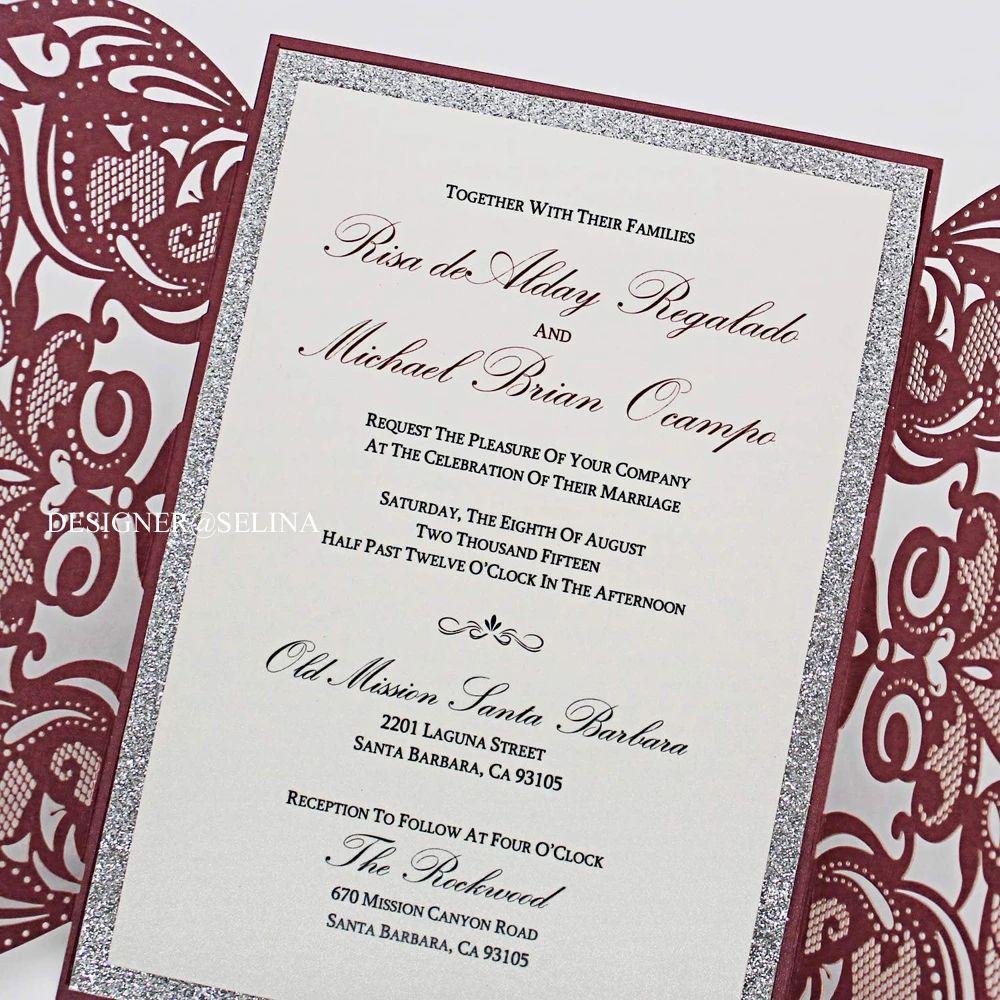 Together With Their Families
Risa de Alday Regalado
and
Michael Brian Ocampo
Request The Pleasure Of Your Company
At The Celebration Of Their Marriage
Saturday, The Eighth Of August
Two Thousand Fifteen
Half Past Twelve O'Clock In The Afternoon
Old Mission Santa Barbara
2201 Laguna Street
Santa Barbara, CA 93105
Reception To Follow At Four O'Clock
The Rockwood
670 Mission Canyon Road
Santa Barbara, CA 93105
DESIGNER@SELINA